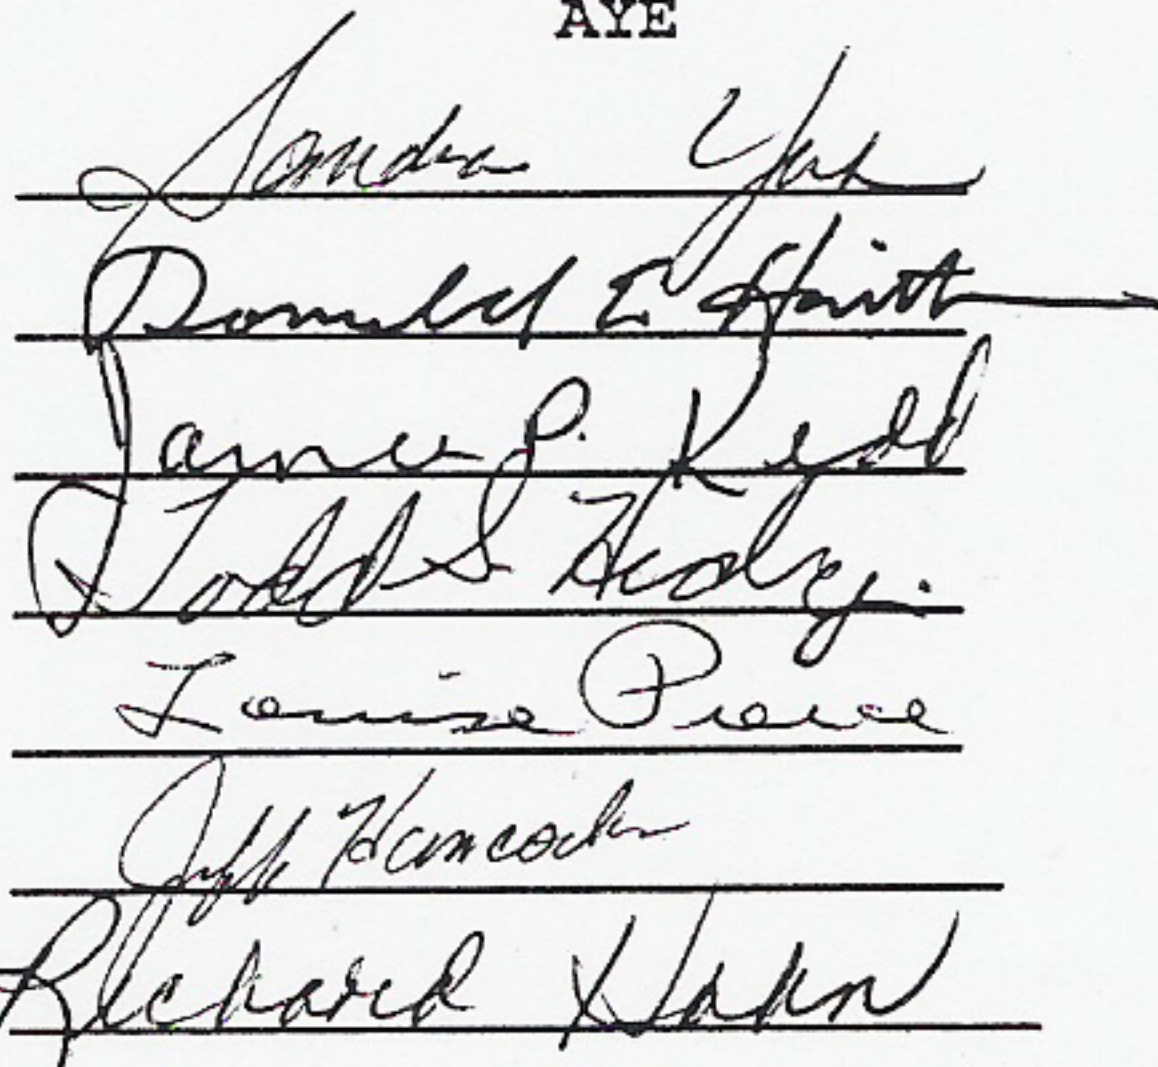 AYE
Sondra
Donald E
James P. Kidd
Todd S
Louise Pierce
Jeff Hancock
Richard Hahn